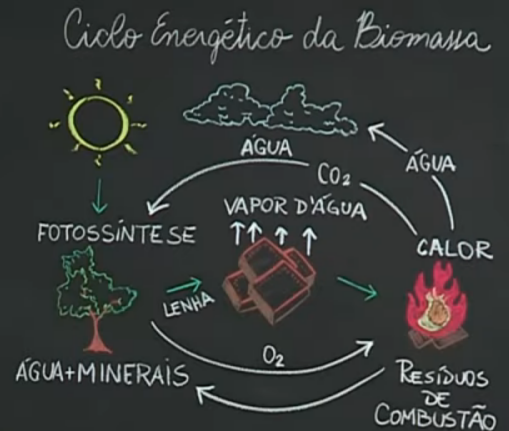 Ciclo Energético da Biomassa
ÁGUA
ÁGUA
CO₂
VAPOR D'ÁGUA
FOTOSSÍNTESE
CALOR
LENHA
O₂
ÁGUA+MINERAIS
RESÍDUOS
DE
COMBUSTÃO